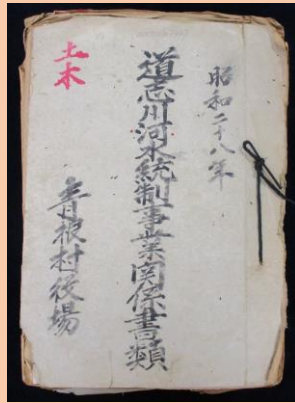 昭和二十八年
道志川河水統制事業関係書類
土木
青根村役場